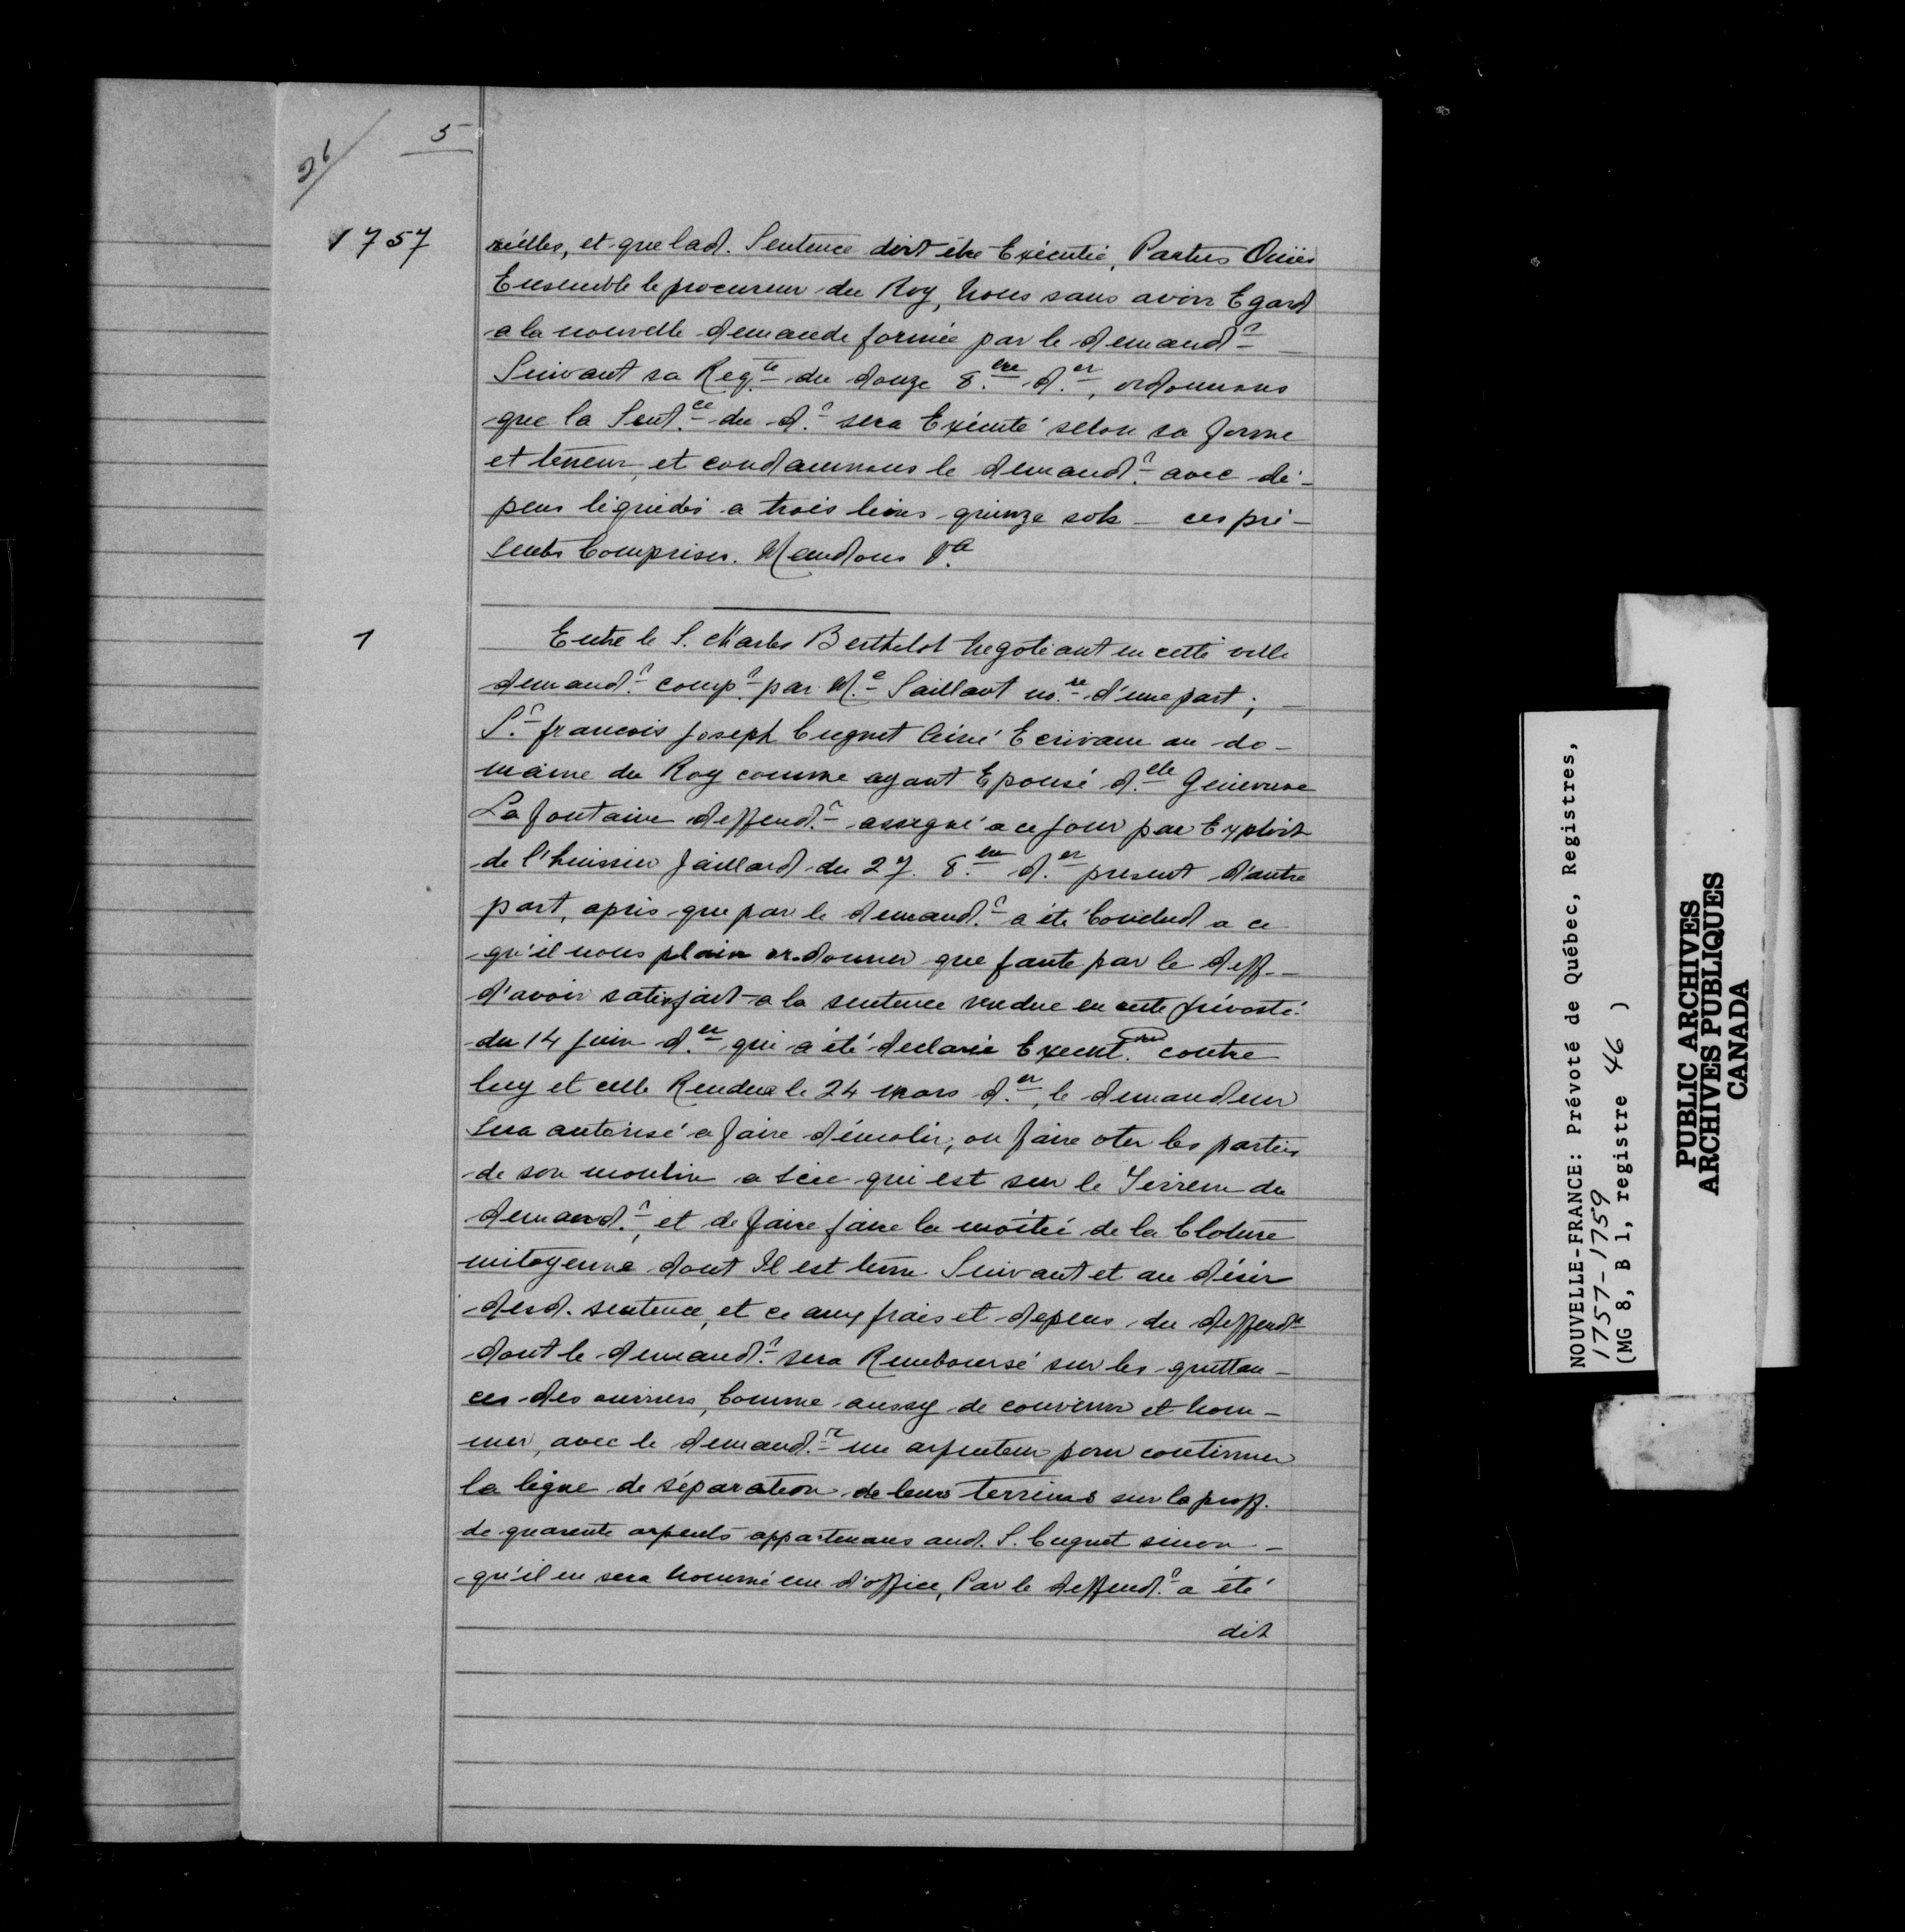 5
26
1757
rielles, et que lad. Sentence doit être Exécutée, Parties Ouïes
Ensemble le procureur du Roy, Nous sans avoir Egard
a la nouvelle demande formée par le demand.r
Suivant sa Req.te du douze 8.bre d.er, ordonnons
que la Sent.ce du d.r sera Exécuté selon sa forme
et teneur, et condamnons le demand.r avec dé-
pens liquidés a trois livres quinze sols - ces pré-
sentes Comprises. Mandons &.a
1
Entre le S. Charles Berthelot Negotiant en cette ville
demand.r comp.t par M.e Saillant no.re d'une part;
S.r francois joseph Cugnet l'ainé Ecrivain au do-
maine du Roy comme ayant Epousé d.elle Genevieve
La fontaine deffend.r assigné a ce jour par Exploit
de l'huissier Jaillard du 27. 8.bre d.er present d'autre
part, après que par le demand.r a été Conclud a ce
qu'il nous plaise ordonner que faute par le deff.
d'avoir satisfait a la sentence rendue en cette prévosté
du 14 juin d.er qui a été declarée Execut.re contre
luy et celle Rendue le 24 mars d.er, le demandeur
sera autorisé a faire démolir, ou faire oter les parties
de son moulin a scie qui est sur le Terrein du
demand.r, et de faire faire la moitié de la Cloture
mitoyenne dont Il est tenu Suivant et au désir
desd. sentence, et ce aux frais et depens du deffend.r
dont le demand.r sera Remboursé sur les quittan-
ces des ouvriers, Comme aussy de convenir et nom-
mer, avec le demand.r un arpenteur pour continuer
la ligne de séparation de leurs terreins sur la proff.
de quarente arpents appartenans aud. S. Cugnet sinon -
qu'il en sera Nommé un d'office, Par le deffend.r a été
dit
NOUVELLE-FRANCE: Prévoté de Québec, Registres,
1757-1759
(MG 8, B 1, registre 46 )
PUBLIC ARCHIVES
ARCHIVES PUBLIQUES
CANADA